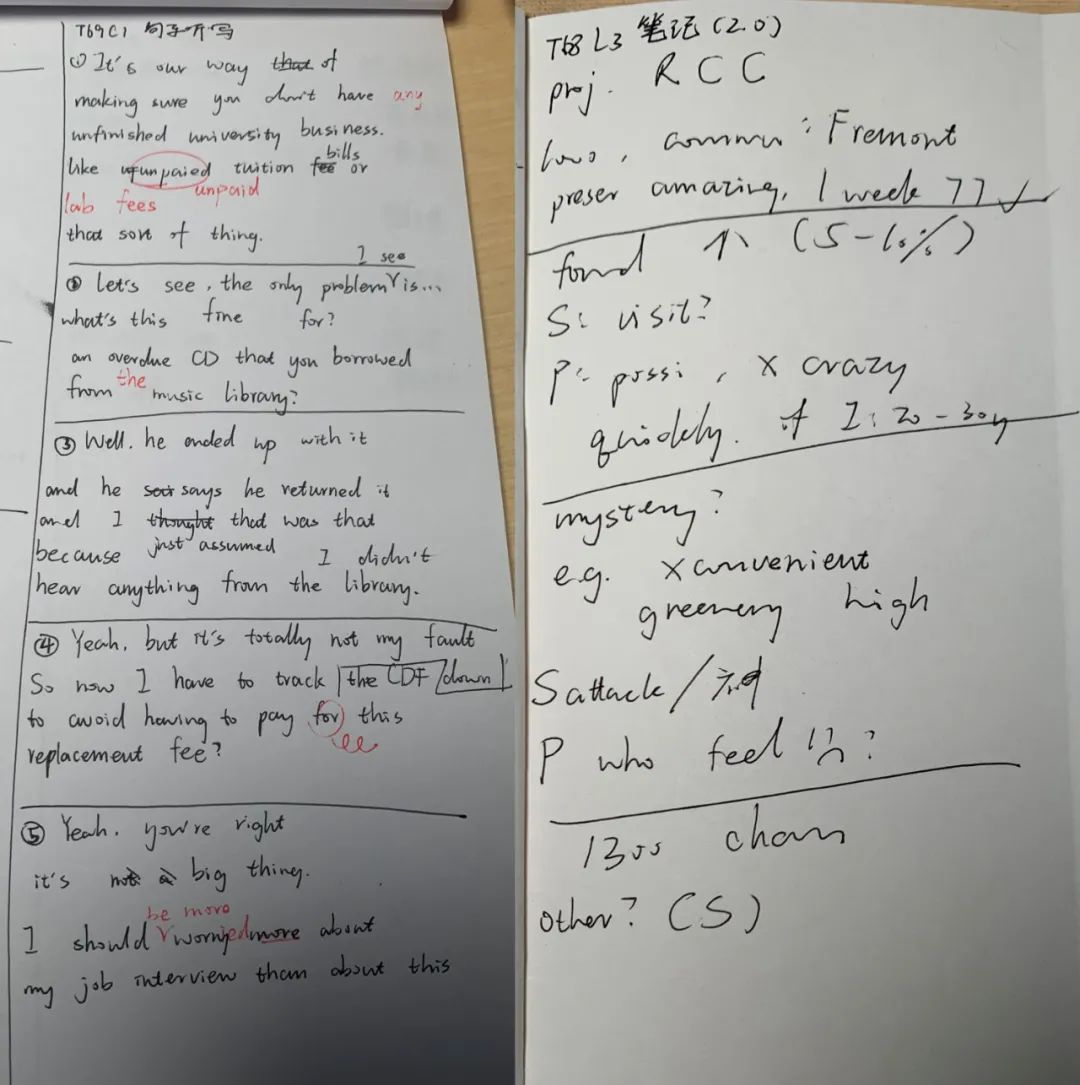 T69 C1 句子听写
① It's our way that of
making sure you don't have any
unfinished university business.
like unpaied tuition fee bills or
unpaid
lab fees
that sort of thing.
I see
② Let's see, the only problem is...
what's this fine for?
an overdue CD that you borrowed
from the music library?
③ Well. he ended up with it
and he says he returned it
and I thought that was that
just assumed
because I didn't
hear anything from the library.
④ Yeah, but it's totally not my fault
So now I have to track the CD down
to avoid having to pay for this
replacement fee?
⑤ Yeah. you're right
it's not a big thing.
be more
I should worried more about
my job interview than about this
T68 L3 笔记(2.0)
proj. R C C
commu: Fremont
preser amazing, 1 week 77 ✓
found ↑ (5-10%)
S: visit?
P: possi, x crazy
quickly. if I: 20-30y
mystery?
e.g. x convenient
greenery high
S attack/神
P who feel ?
1300 cham
other? (S)